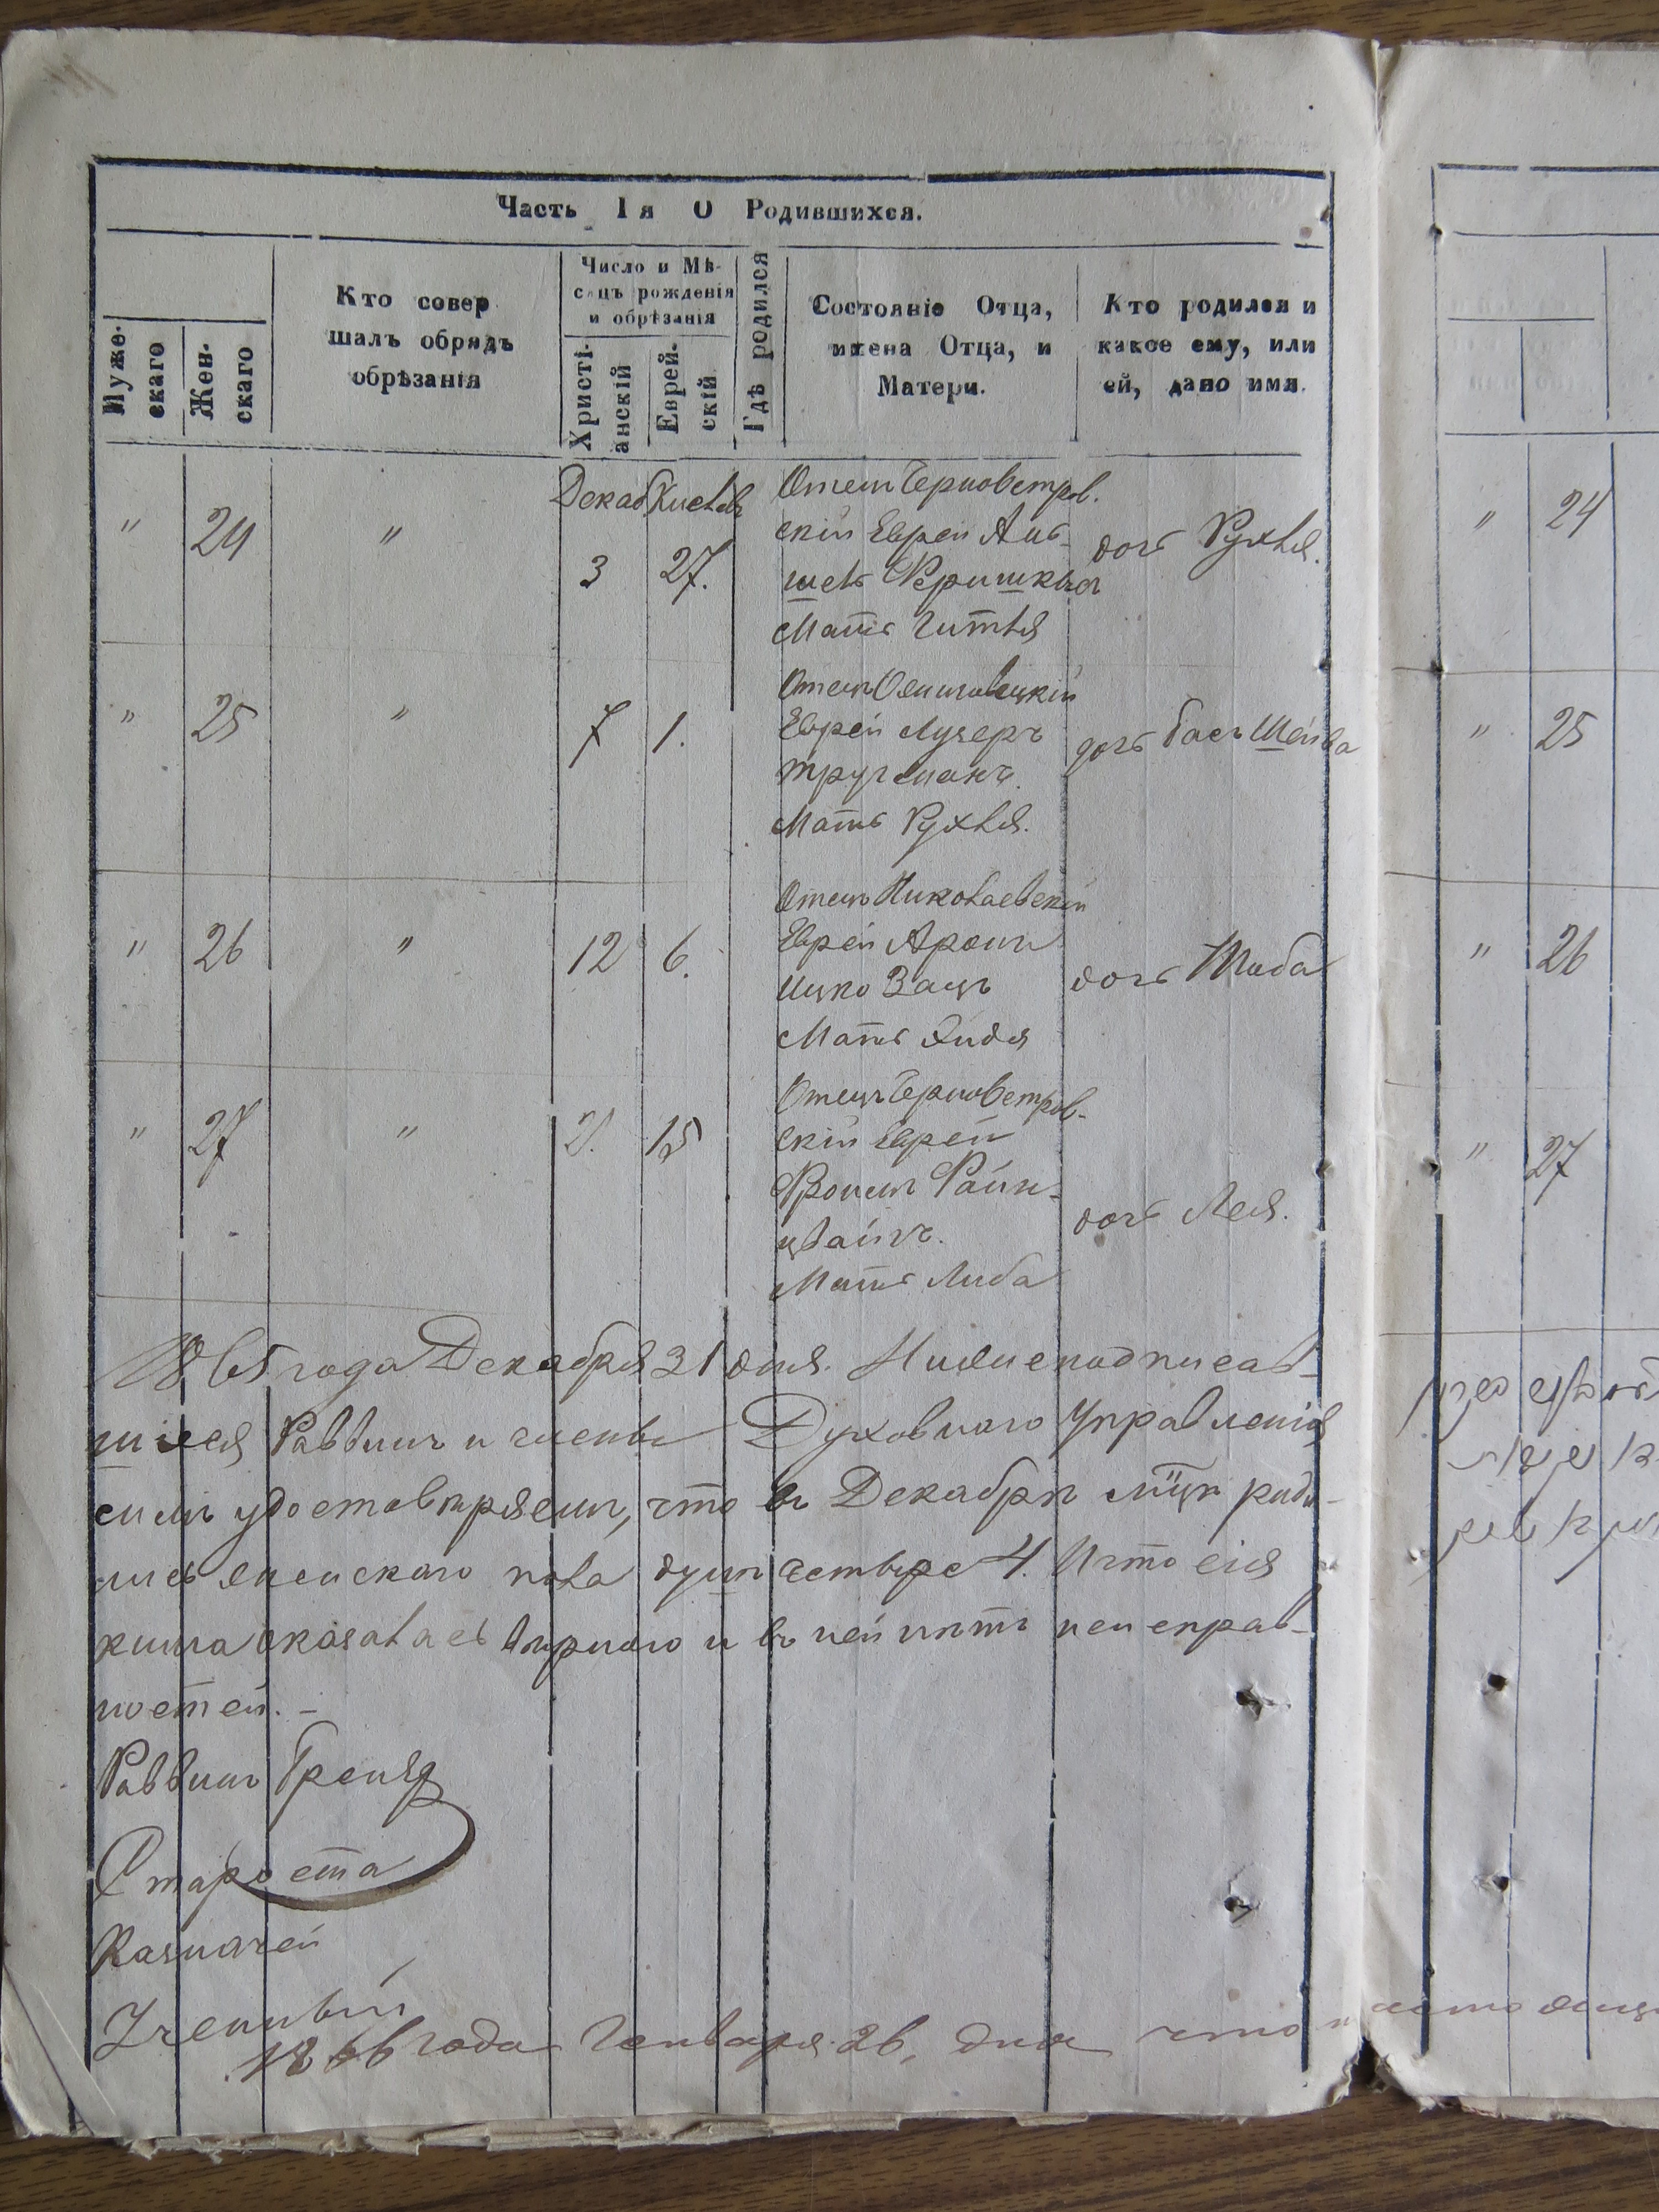 Часть 1я О Родившихся.
Муже-
скаго
Жен-
скаго
Кто совер
шалъ обрядъ
обрѣзанія
Число и Мѣ-
сяцъ рожденія
и обрѣзанія
Христі-
анскій
Еврей-
скій
Гдѣ родился
Состояніе Отца,
имена Отца, и
Матери.
Кто родился и
какое ему, или
ей, дано имя.
Декаб Кислевъ
" 24 " 3 27.
Отецъ Черновстров-
скій Еврей
Мать Гитля
дочь Рухля.
" 25 " 7 1.
Еврей Лузеръ
Тругманъ.
Мать Рухля.
дочь Бася Шейва
" 26 " 12 6.
Отецъ Николаевскій
Еврей Аронъ
Ицко Зацъ
Мать Хидя
дочь Шиба
" 27 " 21. 15
Отецъ Черновстров-
скій Еврей
Фроимъ Райн-
цвайгъ.
Мать Либа
дочь Лея.
1865 года Декабря 31 дня. Нижеподписав-
шіеся Раввинъ и члены Духовнаго Управленія
симъ удостовѣряемъ, что въ Декабрѣ м-цѣ роди-
лись женскаго пола душъ четыре 4. И что сія
книга оказалась вѣрною и въ ней нѣтъ неисправ-
ностей. –
Раввинъ
Староста
Казначей
Ученый
1866 года Генваря 26, дня что настояща
" 24
" 25
" 26
" 27